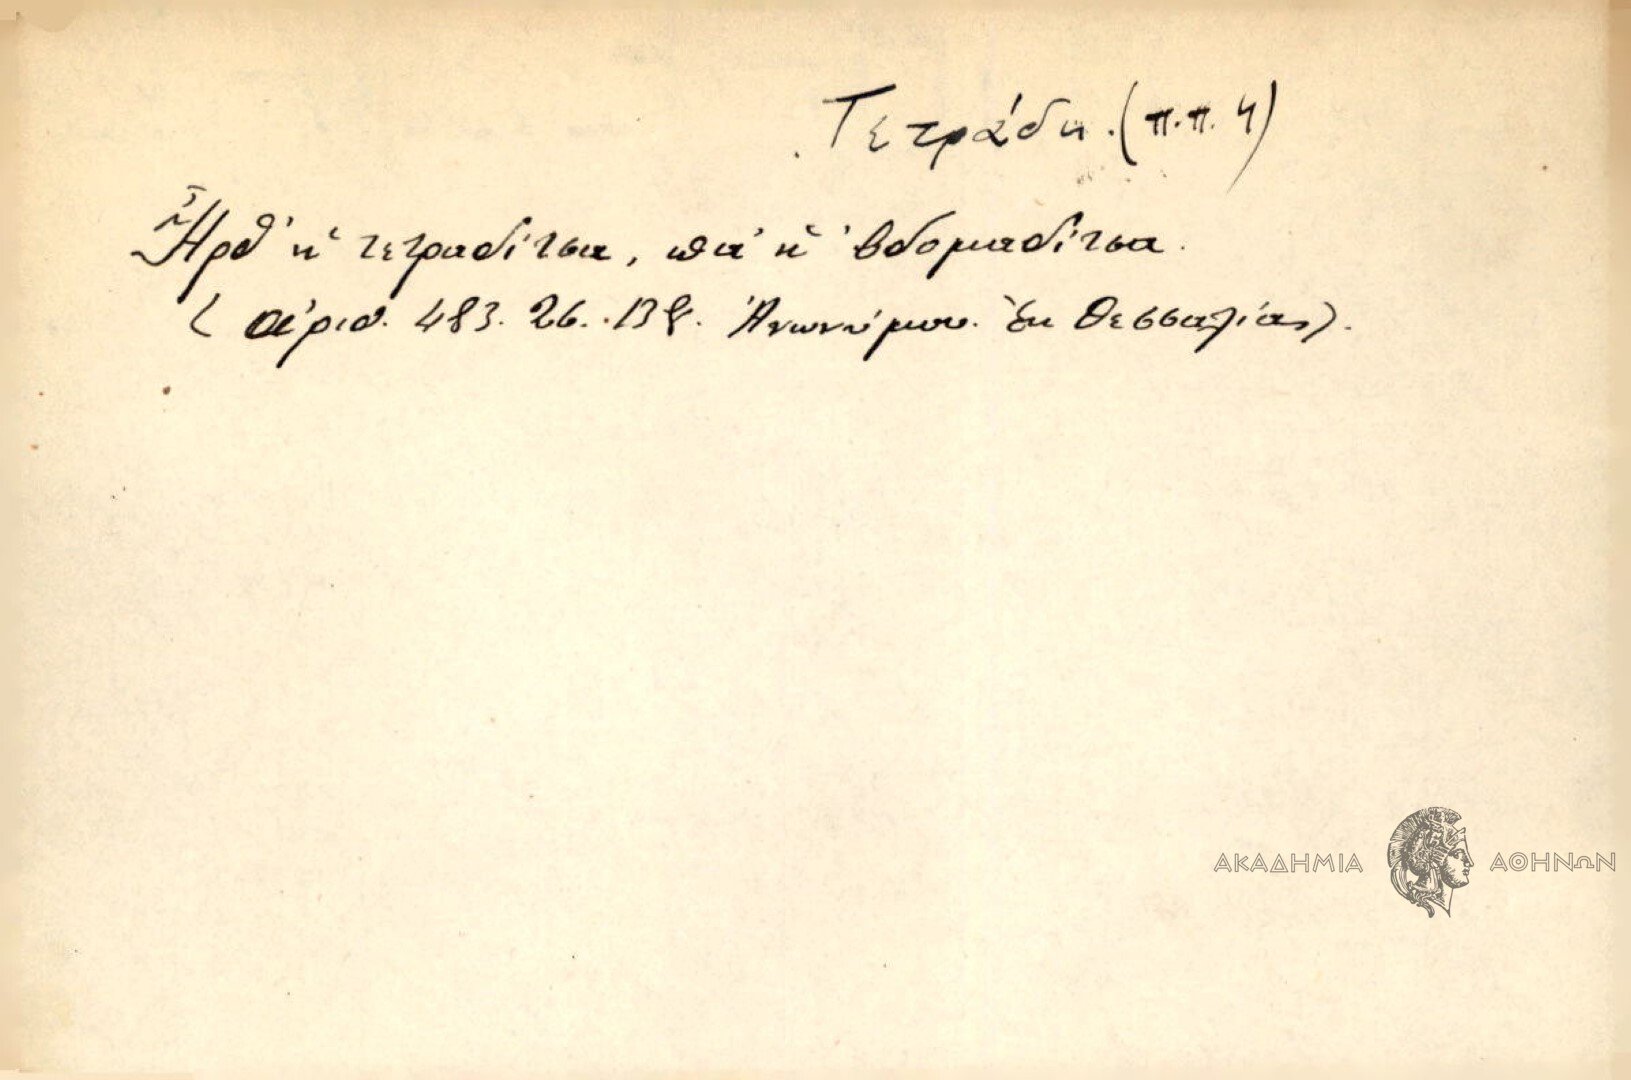 Τετράδη. (π.π. 4)
Ἦρθ' ἡ τετραδίτσα, πά' ἡ 'βδομαδίτσα.
( ἀριθ. 483. 26. 138. Ἀνωνύμου. ἐκ Θεσσαλίας).
ΑΚΑΔΗΜΙΑ ΑΘΗΝΩΝ